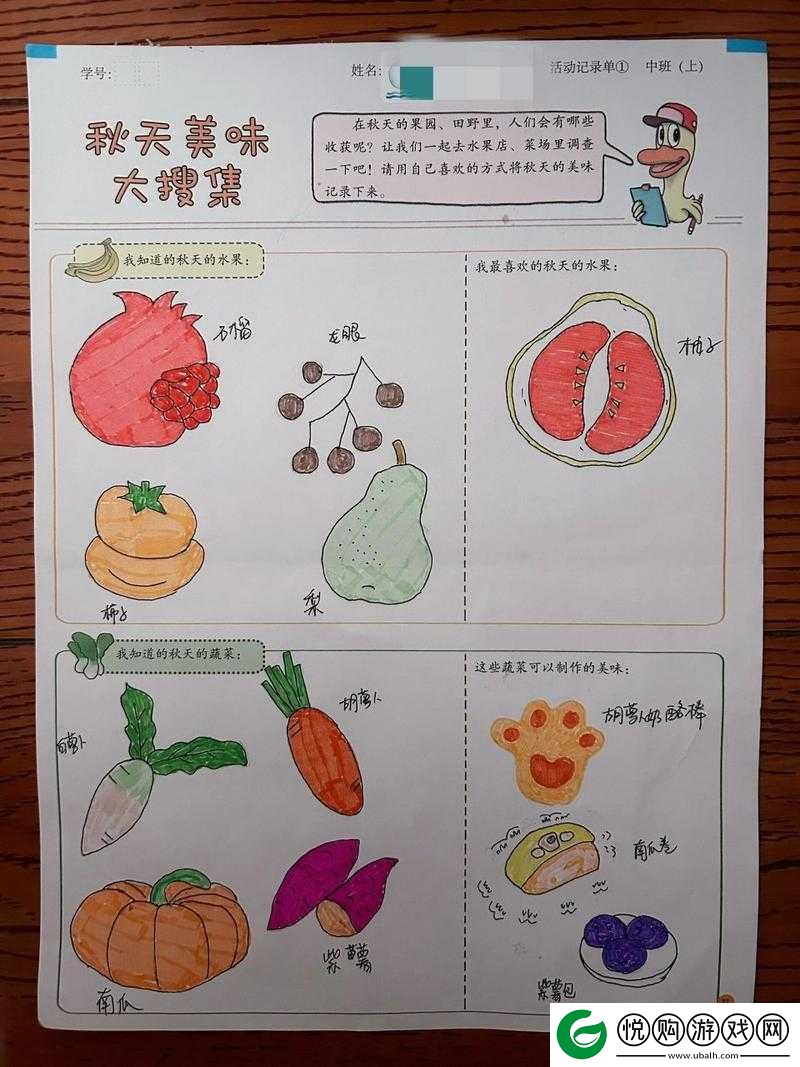 学号：
姓名：
活动记录单① 中班（上）
秋天美味
大搜集
在秋天的果园、田野里，人们会有哪些
收获呢？让我们一起去水果店、菜场里调查
一下吧！请用自己喜欢的方式将秋天的美味
记录下来。
我知道的秋天的水果：
我最喜欢的秋天的水果：
石榴
龙眼
柚子
柿子
梨
我知道的秋天的蔬菜：
这些蔬菜可以制作的美味：
白萝卜
胡萝卜
胡萝卜奶酪棒
南瓜卷
紫薯
南瓜
紫薯包
悦购游戏网
www.ubalh.com